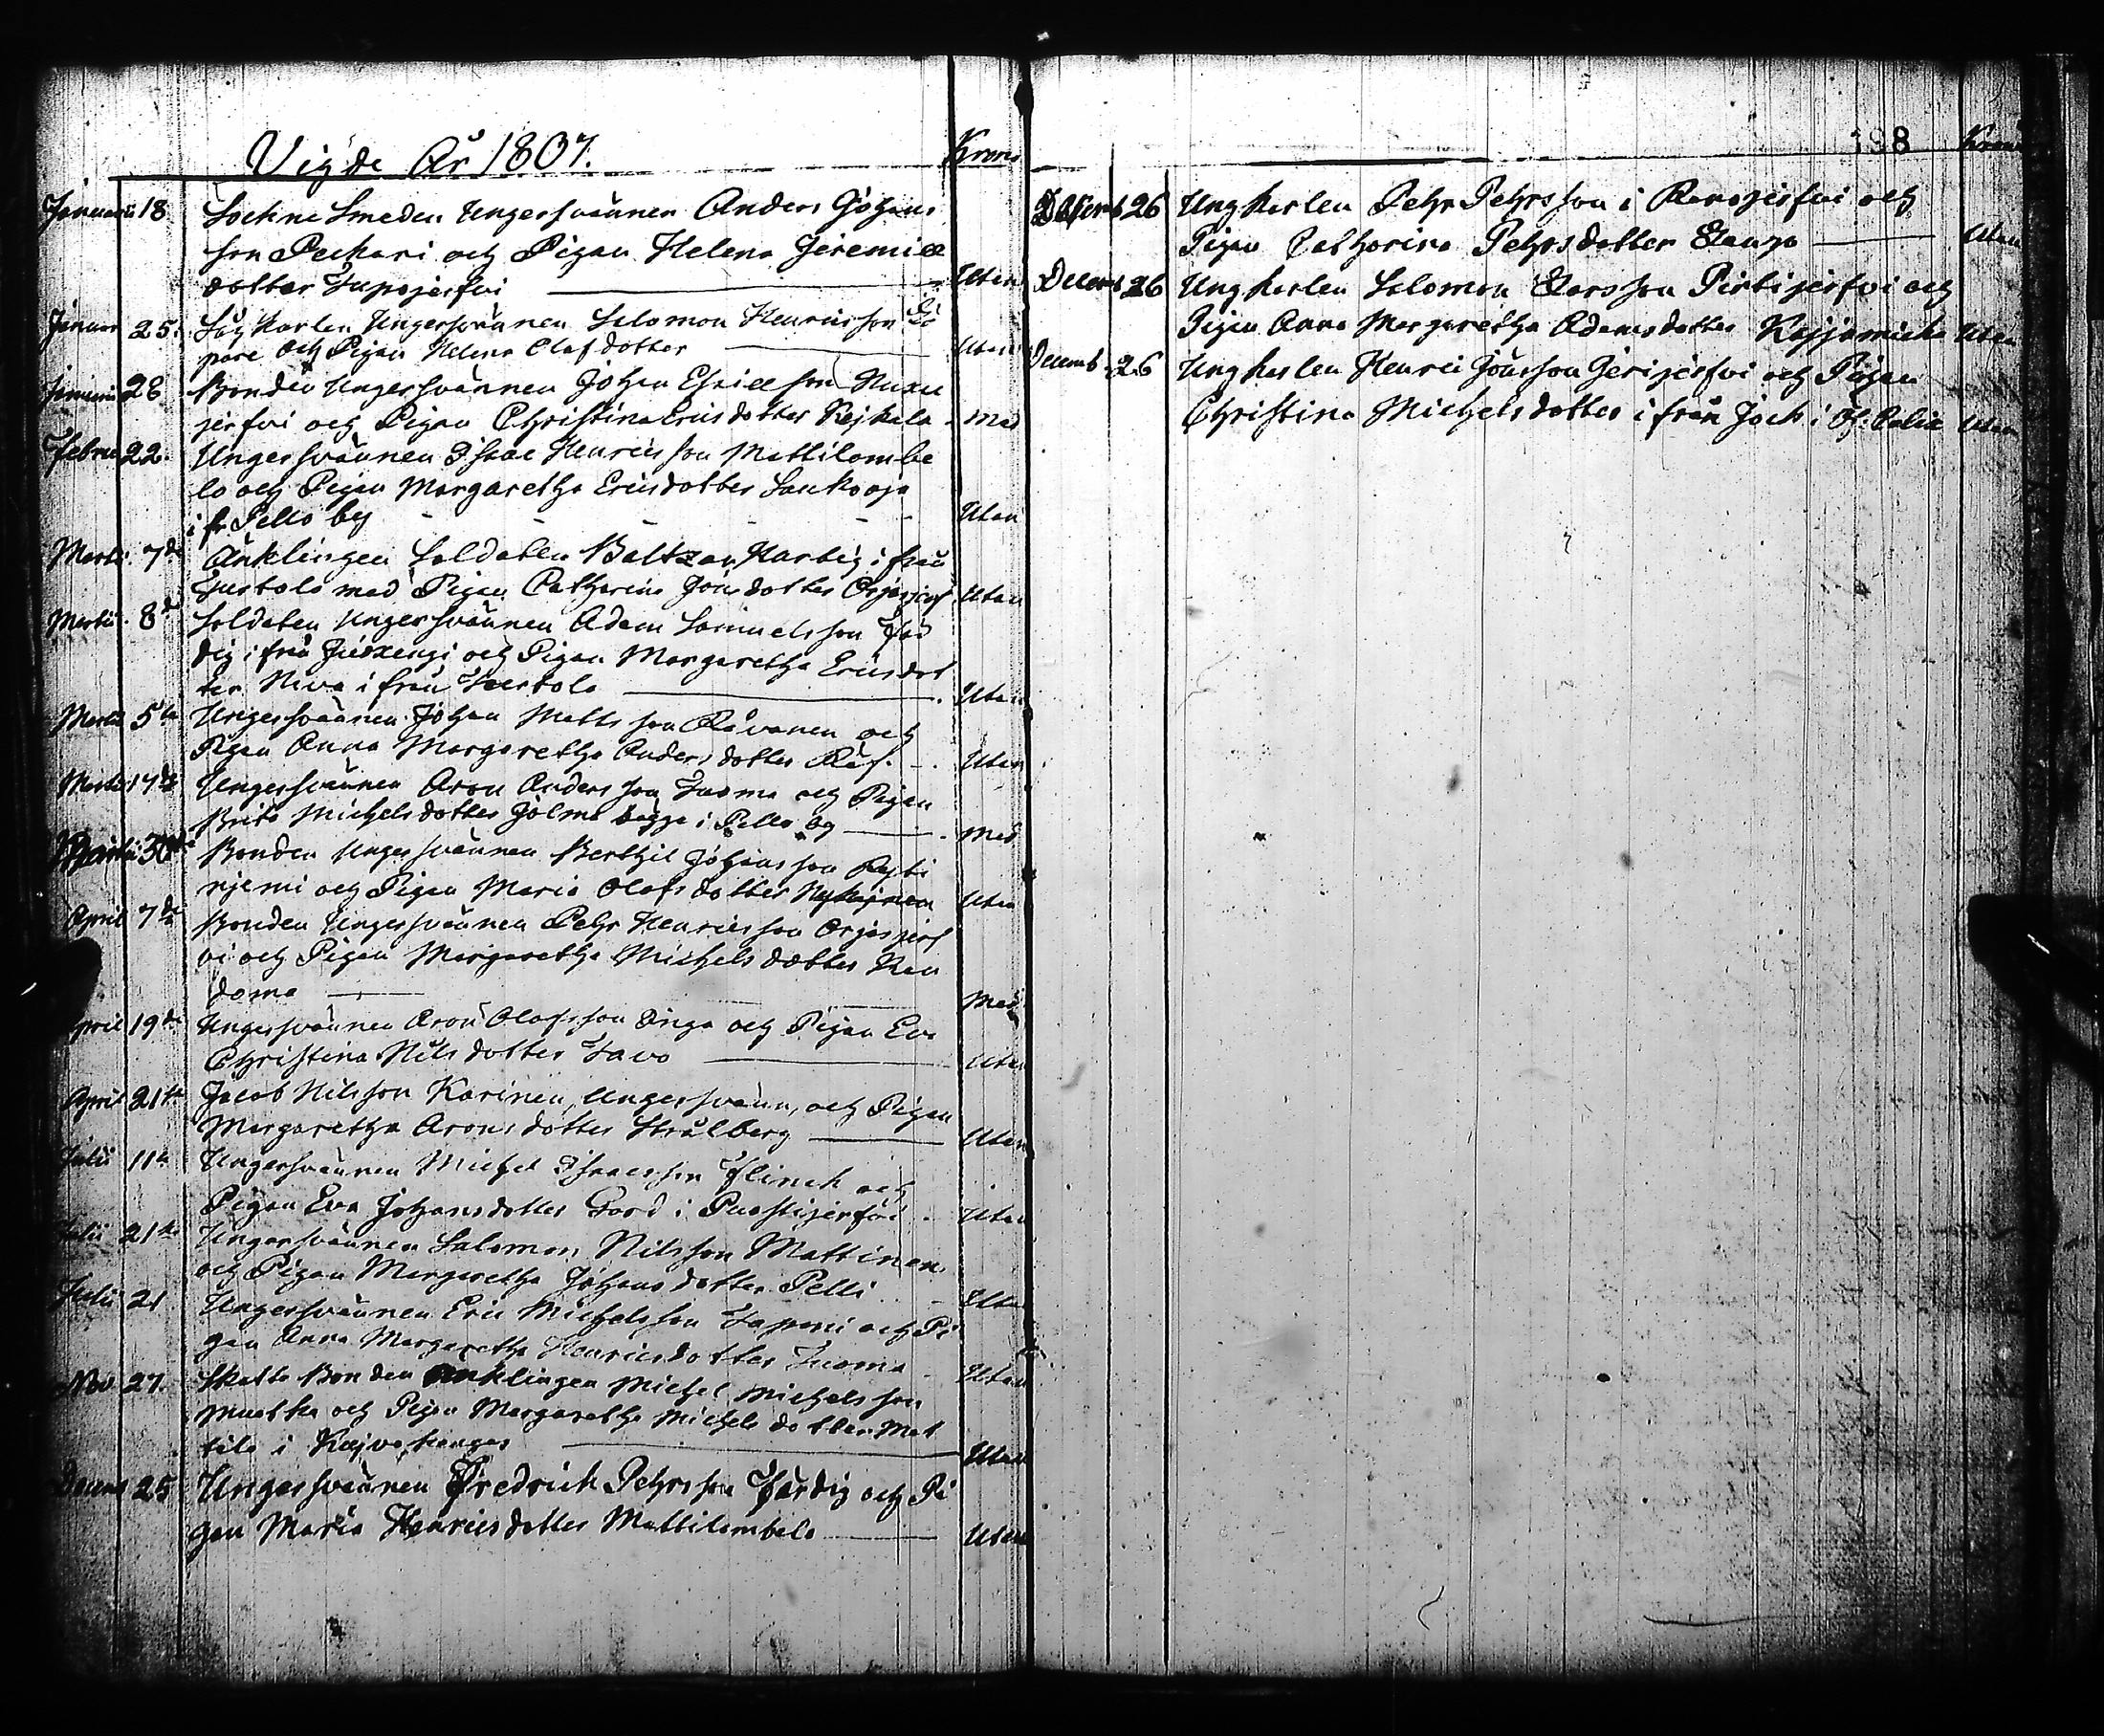 Vigde År 1807. Krona
Januarii 18 Sockne Smeden Ungersvännen Anders Johans
son Peckari och Pigan Helena Jeremiæ
dotter Lupojerfvi Utan
Januar 25. Såg Karlen Ungersvännen Salomon Henricsson
pare och Pigan Helena Olafdotter Utan
Januarii 28 Bonden Ungersvännen Johan Esaiæ son
jerfvi och Pigan Christina Ericsdotter Rejkala Med
Februa 22. Ungersvännen Isaac Henricsson Mattilambe
lo och Pigan Margaretha Ericsdotter Laukooja
i fr Pello by Utan
Martii 7de Änklingen Soldaten Baltzar Hartig i från
Turtola med Pigan Catharina Jönsdotter Orjasjerf Utan
Martii 8de Soldaten Ungersvännen Adam Samuelsson Fär
dig ifrå Juoxengi och Pigan Margaretha Ericsdot
ter Niva i från Turtola Utan
Martii 5te Ungersvännen Johan Matts son Råvanen och
Pigan Anna Margaretha Andersdotter Räf. Utan
Martii 17de Ungersvännen Aron Andersson Tuoma och Pigan
Brita Michelsdotter Jolma bägge i Pello by Med
Martii 30 Bonden Ungersvännen Berthil Johansson
njemi och Pigan Maria Olofsdotter Nykäjnen Utan
April 7de Bonden Ungersvännen Pehr Henricsson Orjasjerf
vi och Pigan Margaretha Michelsdotter Ran
doma Med
April 19de Ungersvännen Aron Olofsson Inga och Pigan Eva
Christina Nilsdotter Tavo Utan
April 21te Jacob Nilsson Karinen, Ungersvänn, och Pigan
Margaretha Aronsdotter Strålberg Utan
Julii 11te Ungersvännen Michel Isaacsson Flinck och
Pigan Eva Johansdotter Gord i Puostijerfvi Utan
Julii 21te Ungersvännen Salomon Nilsson Mattinen
och Pigan Margaretha Johansdotter Pelli Utan
Julii 21 Ungersvännen Eric Michelsson Taponi och Pi
gan Anna Margaretha Henricsdotter Tuoma Utan
Nov. 27. Skatte Bonden Änklingen Michel Michelsson
Muotka och Pigan Margaretha Michelsdotter Mat
tila i Kajvakangas Utan
Decemb 25 Ungersvännen Fredrich Pehrsson Färdig och Pi
gan Maria Henricsdotter Mattilambelo Utan
198 Krona
Decemb 26 Ungkarlen Pehr Pehrsson i Ranojerfvi och
Pigan Catharina Pehrsdotter Stangо Utan
Decemb 26 Ungkarlen Salomon Larsson Pirtijerfvi och
Pigan Anna Margaretha Adamsdotter Utan
Decemb 26 Ungkarlen Henric Jönsson Jerijerfvi och Pigan
Christina Michelsdotter i från Jock i Öf. Calix Utan